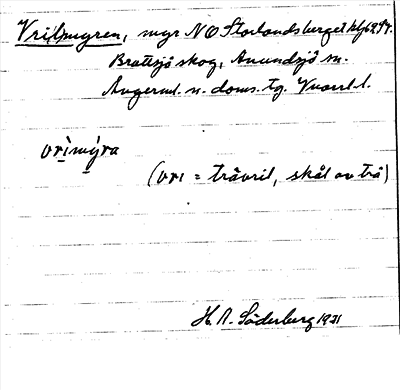 Vril(?)myren, myr NO Storlandsberget
Brattsjö skog, Anundsjö sn.
Ångerml. n. doms. tg. Vnorrl. l.
vrìmýra
(vri = trävril, skål av trä)
H. A. Söderberg 1931